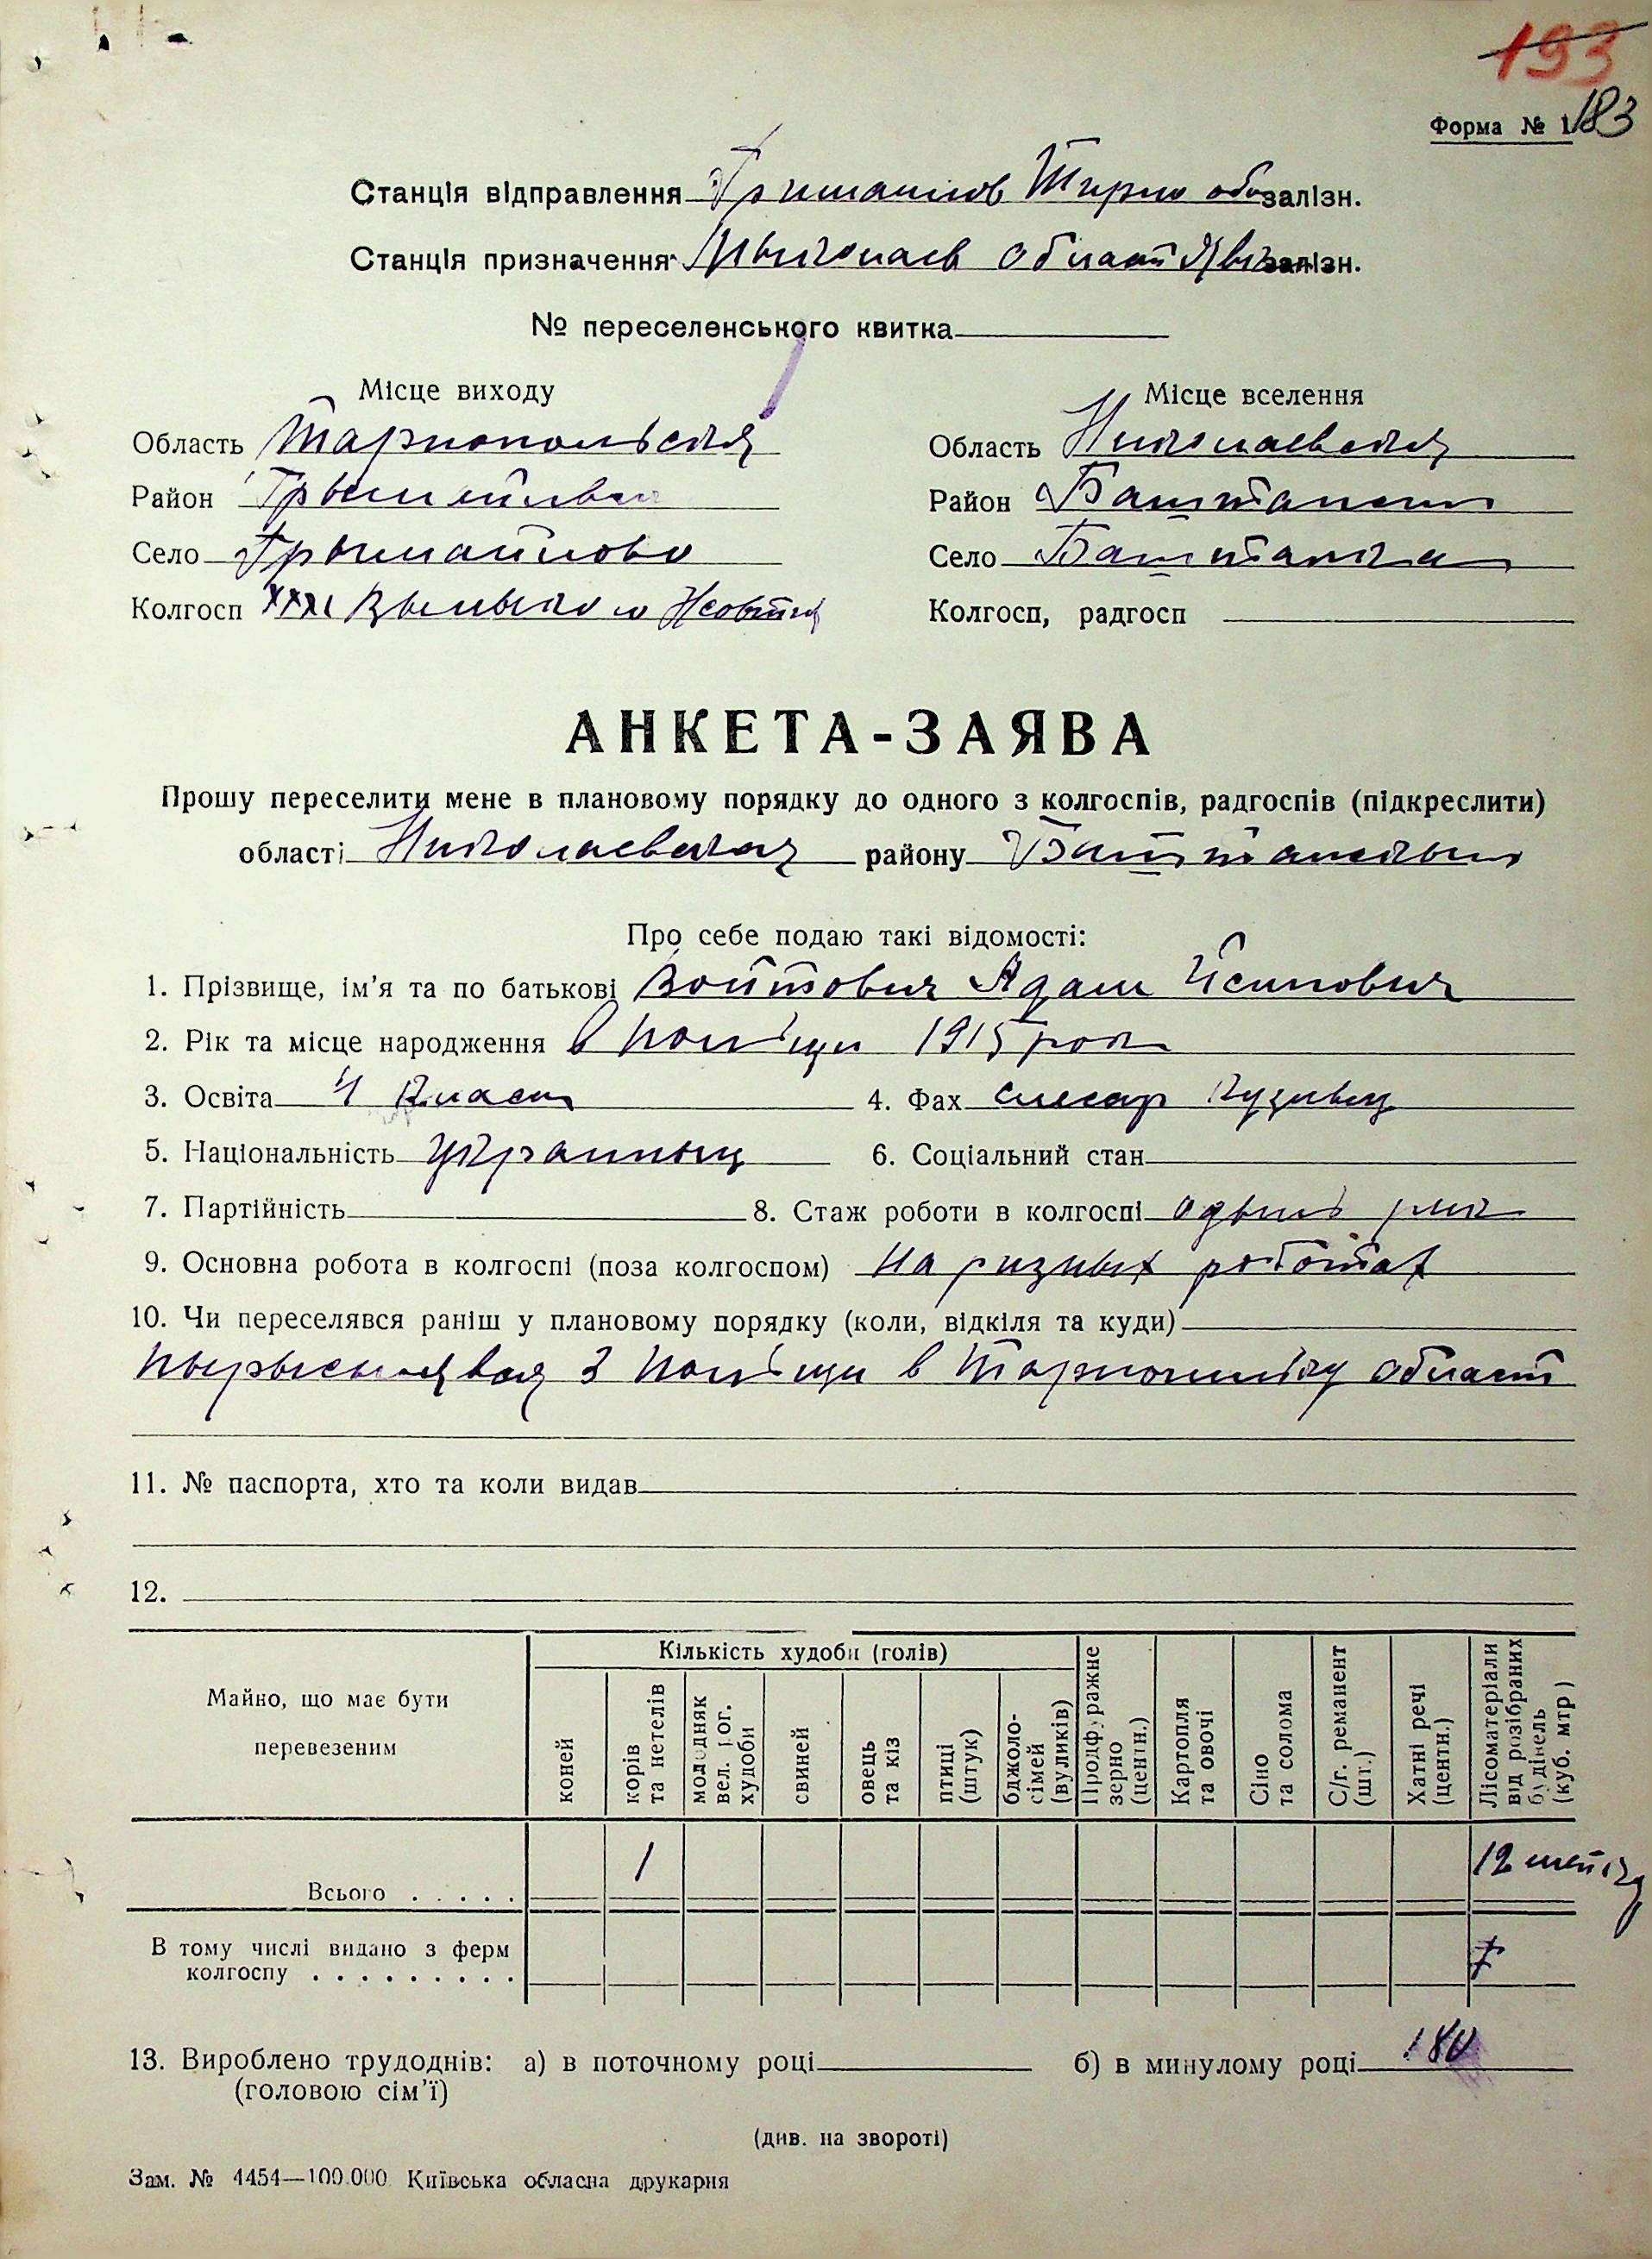 193
Форма № 1 183
Станція відправлення Гримайлов Терно обо залізн.
Станція призначення Мыколаєв област залізн.
№ переселенського квитка
Місце виходу Місце вселення
Область Тарнопольская Область Николаевская
Район Район Баштанский
Село Грымайлово Село Баштанка
Колгосп XXXI Колгосп, радгосп
АНКЕТА-ЗАЯВА
Прошу переселити мене в плановому порядку до одного з колгоспів, радгоспів (підкреслити)
області Николаевская району Баштанскым
Про себе подаю такі відомості:
1. Прізвище, ім’я та по батькові Войтович Адам Йсипович
2. Рік та місце народження в Польщи 1915 рок
3. Освіта 4 класи 4. Фах слесар кузнвец
5. Національність украиныц 6. Соціальний стан
7. Партійність 8. Стаж роботи в колгоспі одынь рик
9. Основна робота в колгоспі (поза колгоспом) на ризных роботах
10. Чи переселявся раніш у плановому порядку (коли, відкіля та куди)
пырысылявся З Польщи в Тарнопильску област
11. № паспорта, хто та коли видав
12.
Майно, що має бути перевезеним
Кількість худоби (голів)
коней
корів та нетелів
молодняк вел. рог. худоби
свиней
овець та кіз
птиці (штук)
бджоло-сімей (вуликів)
Продфуражне зерно (центн.)
Картопля та овочі
Сіно та солома
С/г. реманент (шт.)
Хатні речі (центн.)
Лісоматеріали від розібраних будівель (куб. мтр)
Всього . . . . . 1 12
В тому числі видано з ферм
колгоспу . . . . . . . . .
13. Вироблено трудоднів: а) в поточному році б) в минулому році 180
(головою сім’ї)
(див. на звороті)
Зам. № 4454—100.000 Київська обласна друкарня